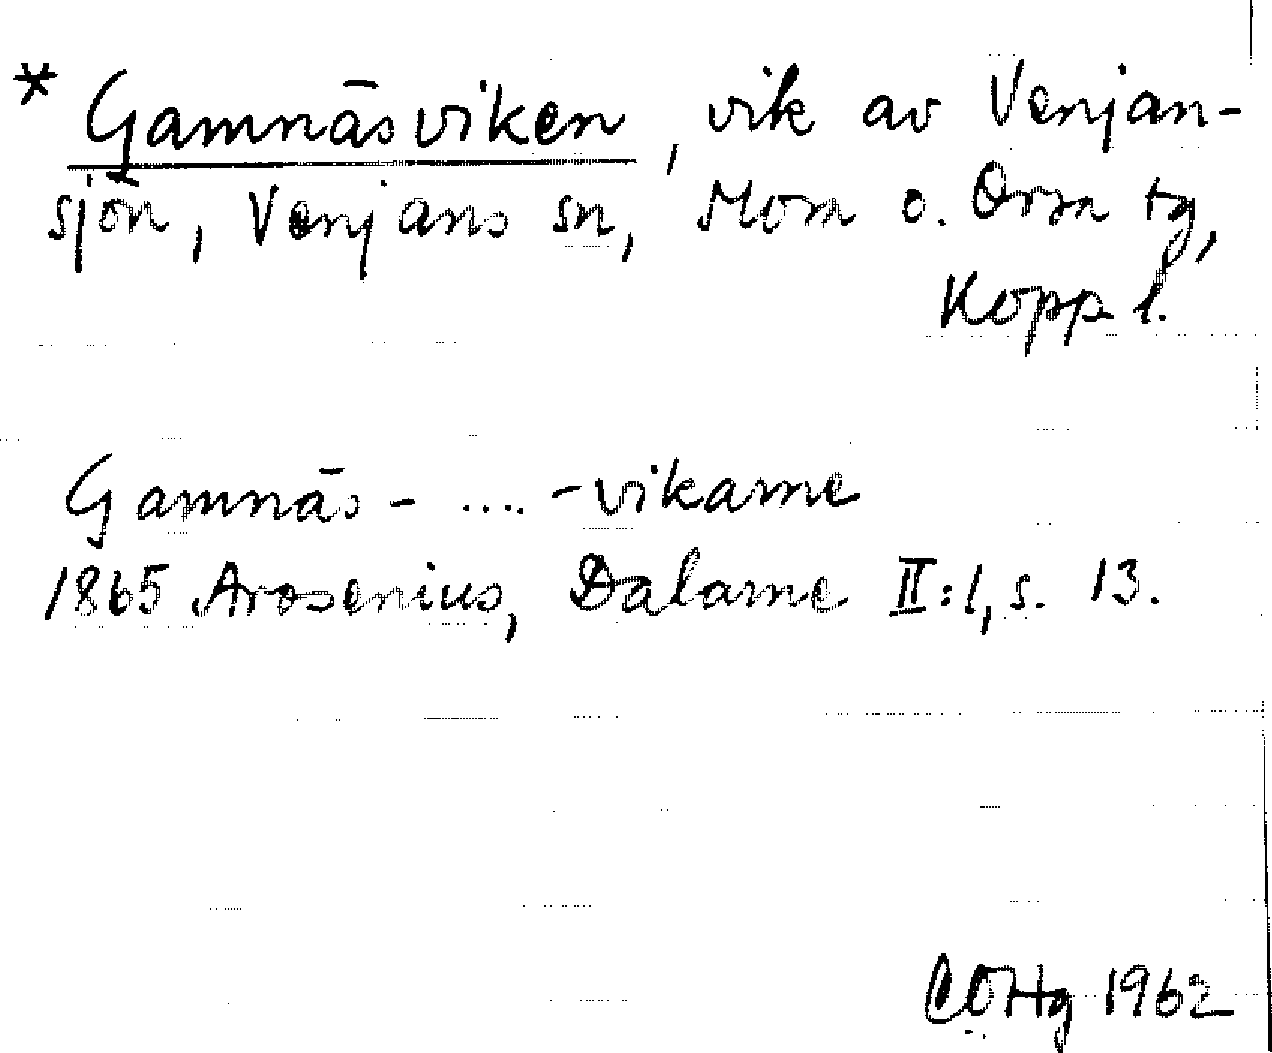 * Gamnäsviken, vik av Venjan-
sjön, Venjans sn, Mora o. Orsa tg,
Kopp l.
Gamnäs- .... -vikarne
1865 Arosenius, Dalarne II:1, s. 13.
1962